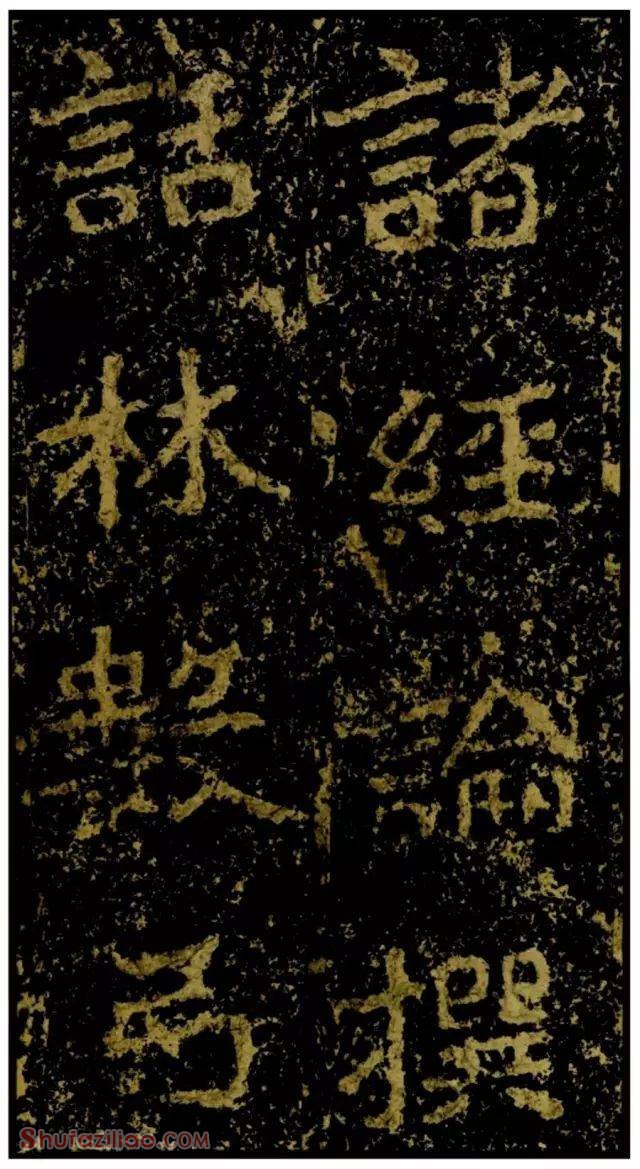 諸經論撰
話林數卷
Shufaziliao.COM